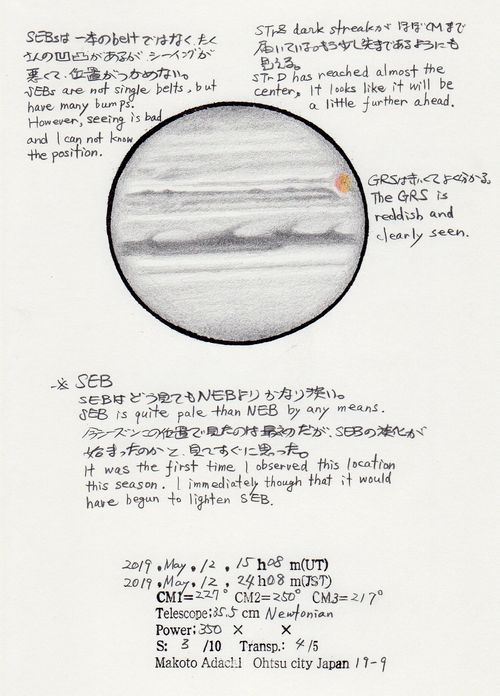 SEBsは一本のbeltではなく、たく
さんの凹凸があるが シーイングが
悪くて、位置がつかめない。
SEBs are not single belts, but
have many bumps.
However, seeing is bad
and I can not know
the position.
STrZ dark streakがほぼCMまで
届いている。もう少し先まであるようにも
見える。
STrD has reached almost the
center, It looks like it will be
a little further ahead.
GRSは赤くてよく分かる。
The GRS is
reddish and
clearly seen.
※ SEB
SEBはどう見てもNEBよりかなり淡い。
SEB is quite pale than NEB by any means.
今シーズンこの位置で見たのは最初だが、SEBの淡化が
始まったのかと、見てすぐに思った。
It was the first time I observed this location
this season. I immediately though that it would
have begun to lighten SEB.
2019 .May. 12 . 15 h08 m(UT)
2019 .May. 12 . 24 h08 m(JST)
CM1=227° CM2=250° CM3=217°
Telescope:35.5 cm Newtonian
Power:350 × ×
S: 3 /10 Transp.: 4/5
Makoto Adachi Ohtsu city Japan 19-9